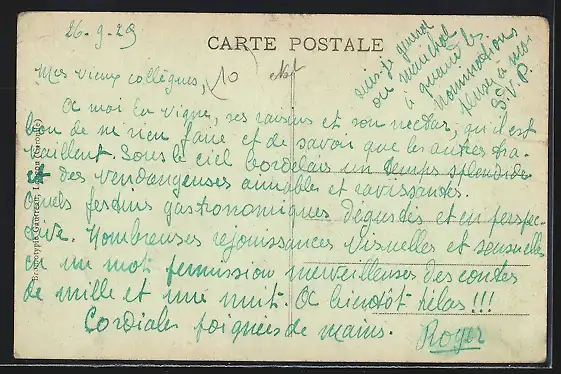 26-9-29
CARTE POSTALE
suis-je général
ou maréchal
à quand les
nominations
pensez à moi
S.V.P.
Mes vieux collègues,
A moi la vigne, ses raisins et son nectar, qu'il est
bon de ne rien faire et de savoir que les autres tra-
vaillent. Sous le ciel bordelais un temps splendide
et des vendangeuses aimables et ravissantes.
Quels festins gastronomiques dégustés et en perspec-
tive. Nombreuses rejouissances visuelles et sensuelles
en un mot permission merveilleuses des contes
de mille et une nuit. A bientôt hélas!!!
Cordiales poignées de mains.
Roger
Gautreau, (Gironde)